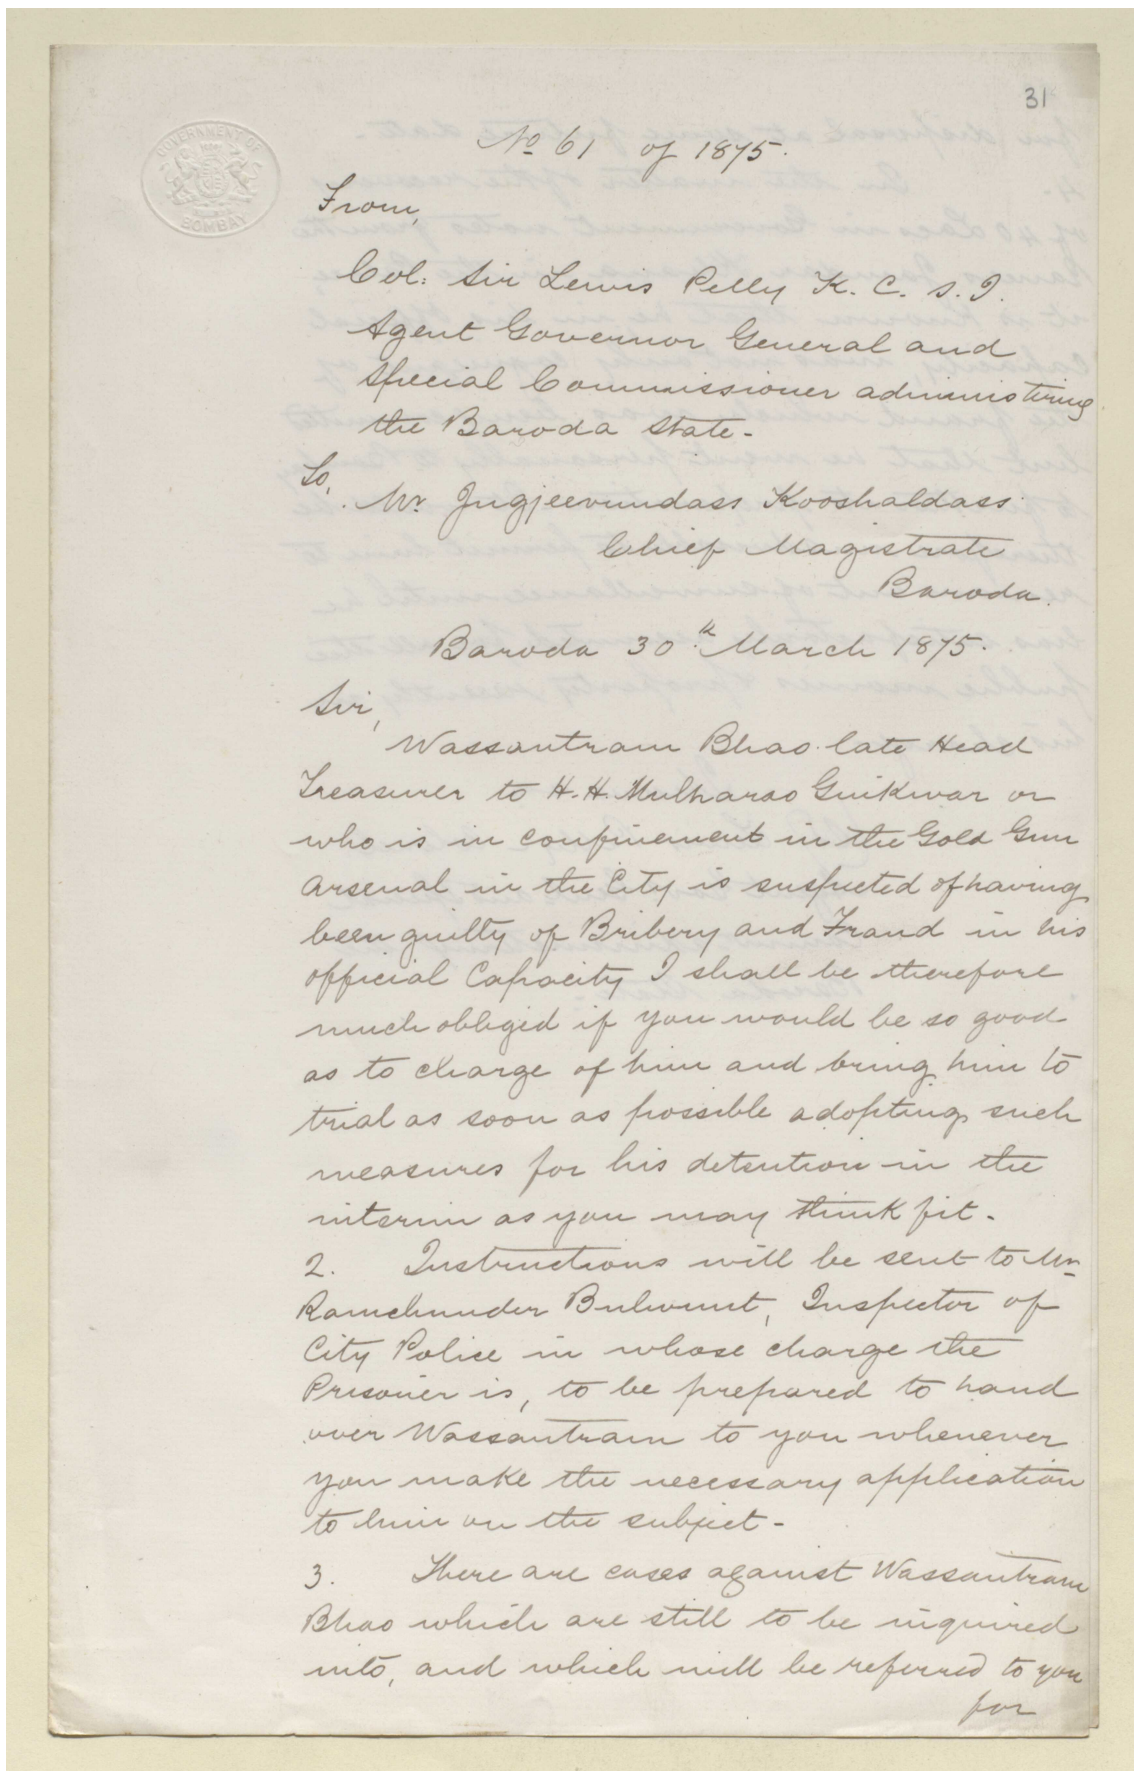 31
GOVERNMENT OF
BOMBAY
No 61 of 1875.
From,
Col: Sir Lewis Pelly K. C. S. I.
Agent Governor General and
Special Commissioner administering
the Baroda State-
To,
Mr Jugjeevundass Kooshaldass
Chief Magistrate
Baroda.
Baroda 30th March 1875.
Sir,
Wassantram Bhao late Head
Treasurer to H. H. Mulharao Guikwar or
who is in confinement in the Gold Gun
Arsenal in the City is suspected of having
been guilty of Bribery and Fraud in his
official Capacity I shall be therefore
much obliged if you would be so good
as to charge of him and bring him to
trial as soon as possible adopting such
measures for his detention in the
interim as you may think fit-
2. Instructions will be sent to Mr
Ramchunder Bulwunt, Inspector of
City Police in whose charge the
Prisoner is, to be prepared to hand
over Wassantram to you whenever
you make the necessary application
to him on the subject-
3. There are cases against Wassantram
Bhao which are still to be inquired
into, and which will be referred to you
for